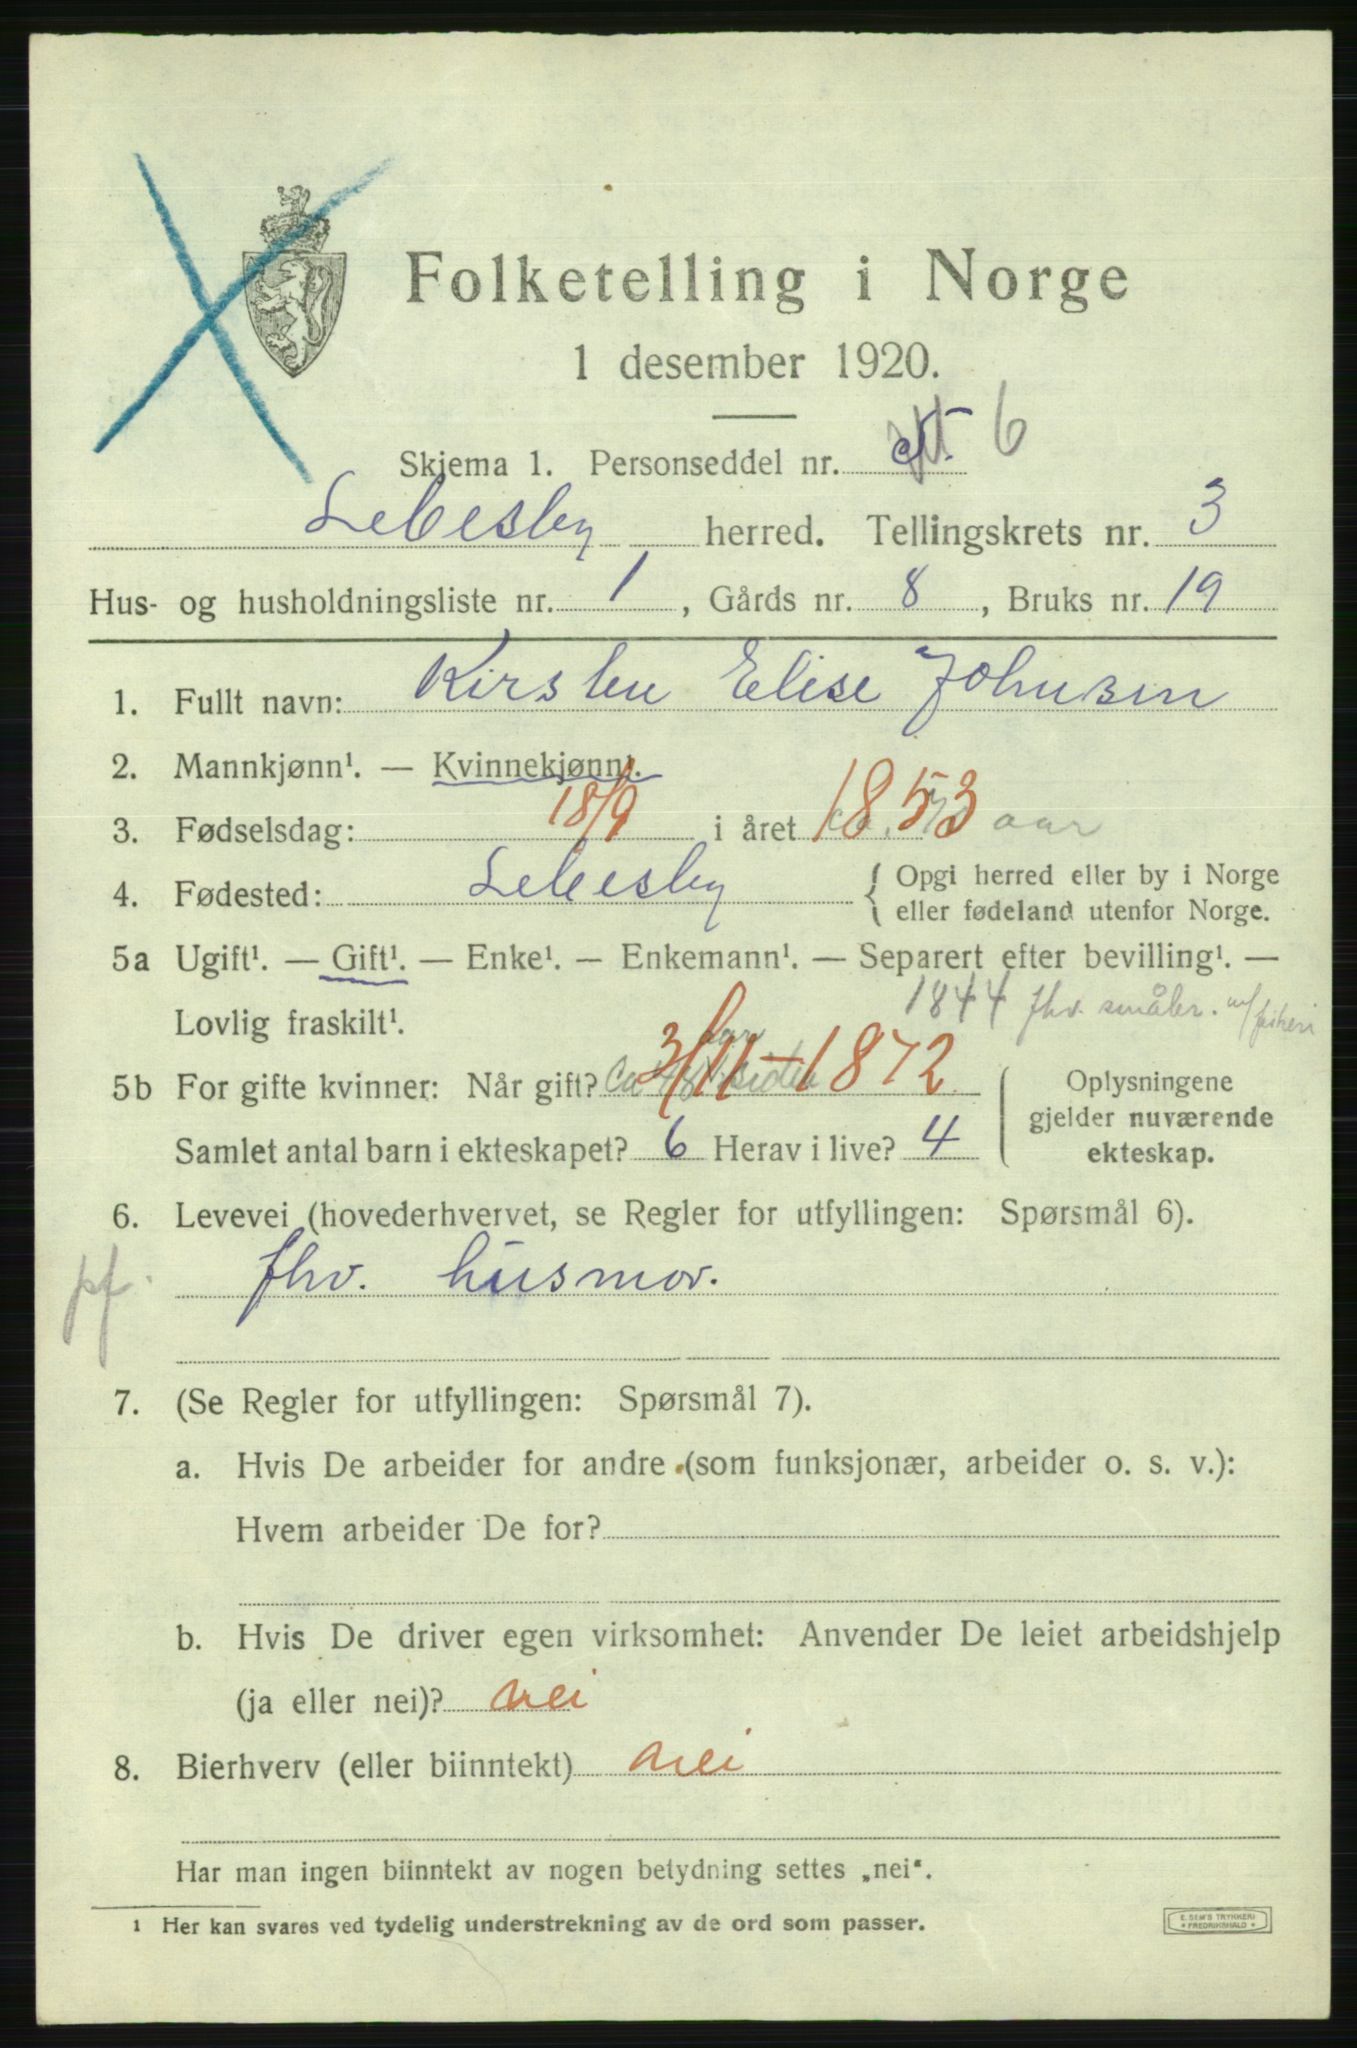 Folketelling i Norge
1 desember 1920.
Skjema 1. Personseddel nr. 6
Lebesby herred. Tellingskrets nr. 3
Hus- og husholdningsliste nr. 1, Gårds nr. 8, Bruks nr. 19
1. Fullt navn: Kirsten Elise Johnsen
2. Mannkjønn¹. — Kvinnekjønn¹.
3. Fødselsdag: 18/9 i året 1853 aar
4. Fødested: Lebesby { Opgi herred eller by i Norge
eller fødeland utenfor Norge.
5a Ugift¹. — Gift¹. — Enke¹. — Enkemann¹. — Separert efter bevilling¹. —
Lovlig fraskilt¹. 1844 fhv. småbr. m/fiskeri
5b For gifte kvinner: Når gift? Ca 48 aar siden 3/11 - 1872
Oplysningene
gjelder nuværende
ekteskap.
Samlet antal barn i ekteskapet? 6 Herav i live? 4
6. Levevei (hovederhvervet, se Regler for utfyllingen: Spørsmål 6).
pf. fhv. husmor.
7. (Se Regler for utfyllingen: Spørsmål 7).
a. Hvis De arbeider for andre (som funksjonær, arbeider o. s. v.):
Hvem arbeider De for?
b. Hvis De driver egen virksomhet: Anvender De leiet arbeidshjelp
(ja eller nei)? nei
8. Bierhverv (eller biinntekt) nei
Har man ingen biinntekt av nogen betydning settes „nei“.
1 Her kan svares ved tydelig understrekning av de ord som passer.
E. SEM'S TRYKKERI
FREDRIKSHALD